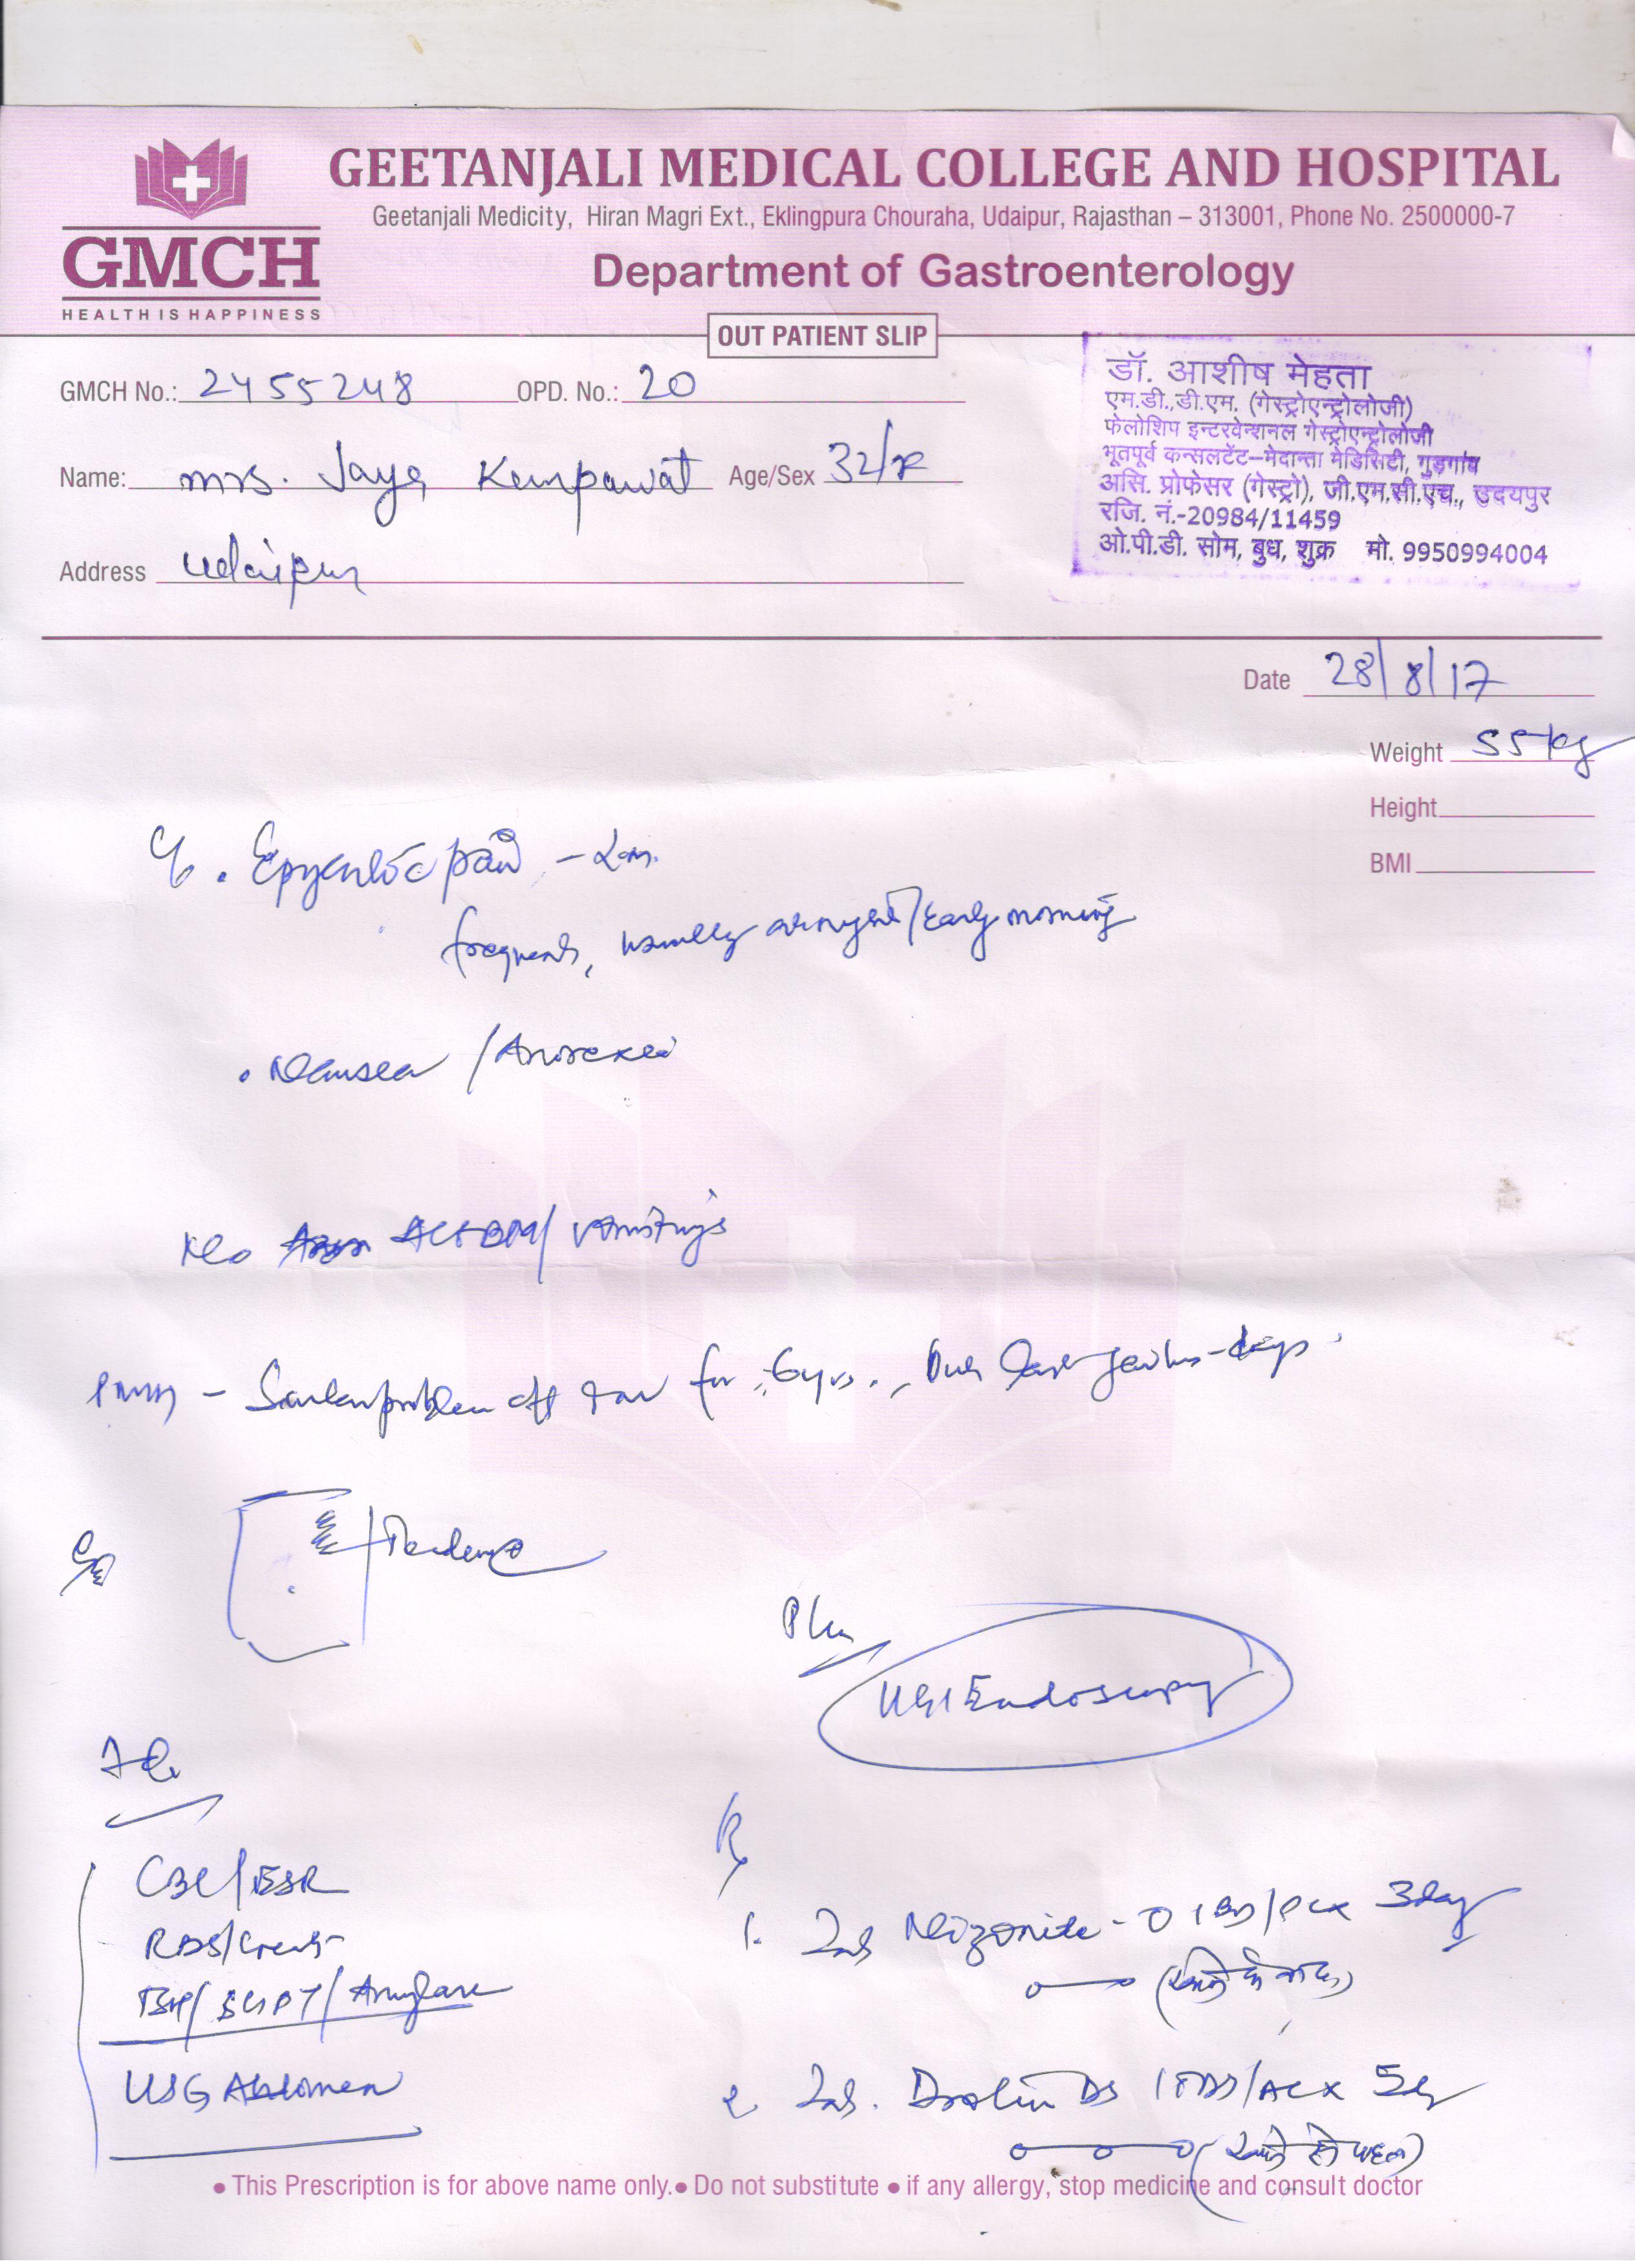 GEETANJALI MEDICAL COLLEGE AND HOSPITAL
Geetanjali Medicity, Hiran Magri Ext., Eklingpura Chouraha, Udaipur, Rajasthan – 313001, Phone No. 2500000-7
GMCH
HEALTH IS HAPPINESS
Department of Gastroenterology
OUT PATIENT SLIP
डॉ. आशीष मेहता
एम.डी.,डी.एम. (गेस्ट्रोएन्ट्रोलोजी)
फेलोशिप इन्टरवेन्शनल गेस्ट्रोएन्ट्रोलोजी
भूतपूर्व कन्सलटेंट–मेदान्ता मेडिसिटी, गुड़गांव
असि. प्रोफेसर (गेस्ट्रो), जी.एम.सी.एच., उदयपुर
रजि. नं.-20984/11459
ओ.पी.डी. सोम, बुध, शुक्र मो. 9950994004
GMCH No.: 2455248 OPD. No.: 20
Name: Mrs. Jaya Age/Sex 32/
Address Udaipur
Date 28/8/17
Weight 55 kg
Height
BMI
Epigastric pain -
frequent, usually /Early morning
• Nausea /Anorexia
/ Vomitings
- problem off for 6 yrs. days
Plan
UGI Endoscopy
CBC/ESR
RBS/Creat
SGPT/Amylase
USG Abdomen
Rx
1. Tab 1 BD/PC x 3day
(खाने के बाद)
2. Tab. DS 1 TDS/AC x 5d
(खाने से पहले)
• This Prescription is for above name only. • Do not substitute • if any allergy, stop medicine and consult doctor